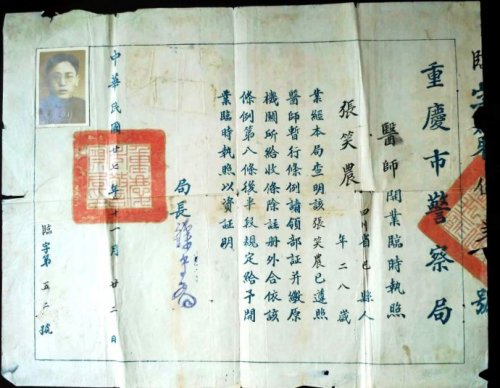 重慶市警察局
醫師開業臨時執照
張笑農 年二八歲 四川省巴縣人
業經本局查明該張笑農已遵照
醫師暫行條例請領部証并繳原
機關所給收條除註册外合依該
條例第八條後半段規定給予開
業臨時執照以資証明
局長
中華民國廿七年十一月廿二日
臨字第五二號